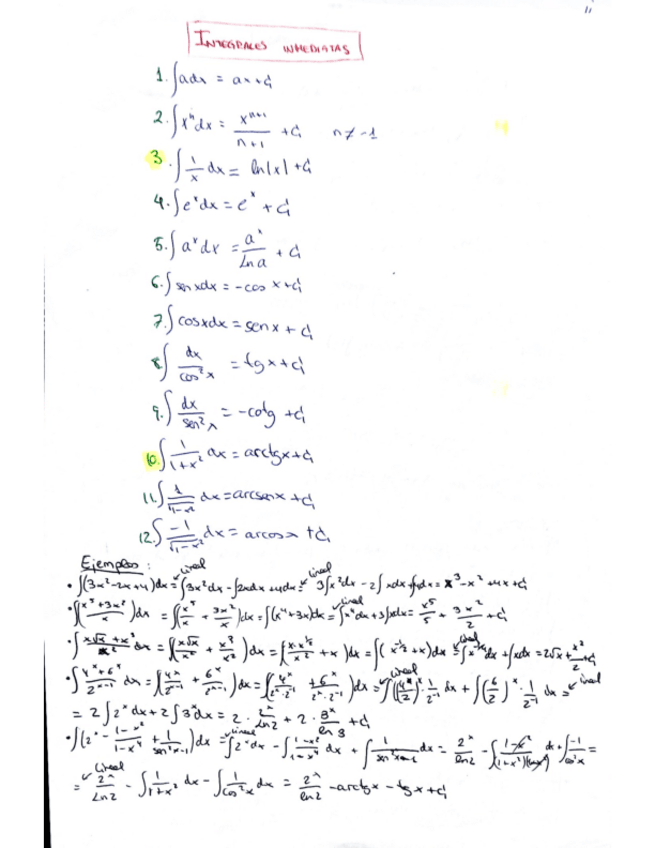 11
INTEGRALES INMEDIATAS
1. ∫adx = ax+C
2. ∫xⁿdx = xⁿ⁺¹/(n+1) + C n ≠ -1
3. ∫1/x dx = ln|x| + C
4. ∫eˣdx = eˣ + C
5. ∫aˣdx = aˣ/Ln a + C
6. ∫senxdx = -cos x + C
7. ∫cosxdx = senx + C
8. ∫dx/cos²x = tgx + C
9. ∫dx/sen²x = -cotg + C
10. ∫1/(1+x²) dx = arctgx + C
11. ∫1/√(1-x²) dx = arcsenx + C
12. ∫-1/√(1-x²) dx = arcosx + C
Ejemplos:
• ∫(3x²-2x+4)dx = lineal ∫3x²dx - ∫2xdx + 4dx = lineal 3∫x²dx - 2∫xdx + = x³ - x² + 4x + C
• ∫((x⁵+3x²)/x)dx = ∫(x⁵/x + 3x²/x)dx = ∫(x⁴+3x)dx = lineal ∫x⁴dx + 3∫xdx = x⁵/5 + 3x²/2 + C
• ∫(x√x + x³)/x² dx = ∫(x√x/x² + x³/x²)dx = ∫(x·x^½/x² + x)dx = ∫(x^-½ + x)dx = lineal ∫x^-½dx + ∫xdx = 2√x + x²/2 + C
• ∫(4ˣ+6ˣ)/2ˣ⁻¹ dx = ∫(4ˣ/2ˣ⁻¹ + 6ˣ/2ˣ⁻¹)dx = ∫(4ˣ/2ˣ·2⁻¹ + 6ˣ/2ˣ·2⁻¹)dx = lineal ∫(4/2)ˣ·1/2⁻¹ dx + ∫(6/2)ˣ·1/2⁻¹ dx = lineal
= 2∫2ˣdx + 2∫3ˣdx = 2·2ˣ/Ln2 + 2·3ˣ/ln 3 + C
• ∫(2ˣ - (1-x²)/(1-x⁴) + 1/(sen²x-1))dx = lineal ∫2ˣdx - ∫(1-x²)/(1-x⁴) dx + ∫1/(sen²x-1) dx = 2ˣ/ln2 - ∫(1-x²)/((1+x²)(1-x²)) dx + ∫-1/cos²x =
= lineal 2ˣ/Ln2 - ∫1/(1+x²) dx - ∫1/cos²x dx = 2ˣ/ln2 - arctgx - tgx + C